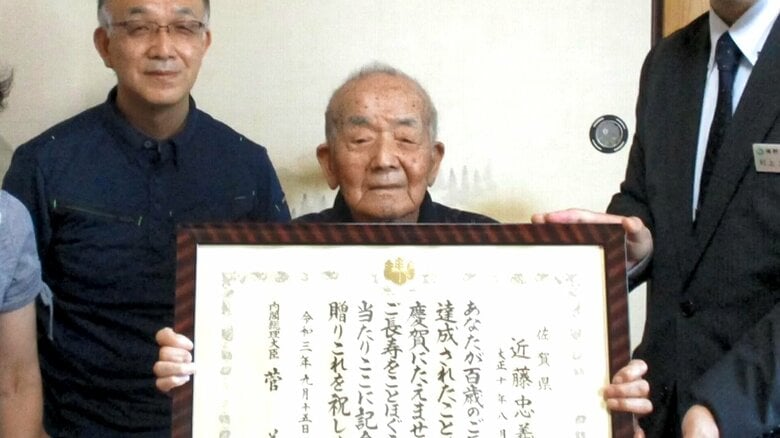 佐賀県
近藤忠義
大正十年八月
あなたが百歳のご
達成されたこと
慶賀にたえませ
ご長寿をことほぎ
当たりここに記念
贈りこれを祝し
令和三年九月十五日
内閣総理大臣 菅 義
村上